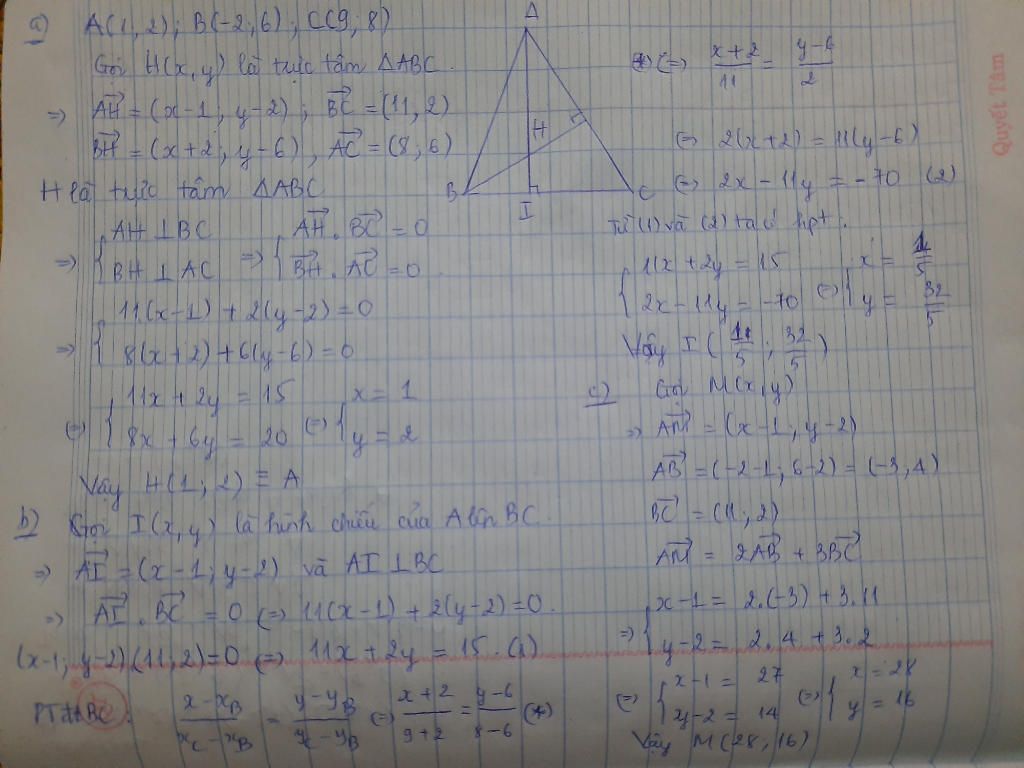 a) A(1,2); B(-2;6); C(9;8)
Gọi H(x,y) là trực tâm ΔABC.
=> AH→ = (x-1; y-2); BC→ = (11,2)
BH→ = (x+2; y-6), AC→ = (8;6)
H là trực tâm ΔABC
=> { AH ⊥ BC
BH ⊥ AC
=> { AH→ . BC→ = 0
BH→ . AC→ = 0
=> { 11(x-1) + 2(y-2) = 0
8(x+2) + 6(y-6) = 0
(=) { 11x + 2y = 15
8x + 6y = 20
(=) { x = 1
y = 2
Vậy H(1;2) ≡ A
b) Gọi I(x,y) là hình chiếu của A lên BC.
=> AI→ = (x-1; y-2) và AI ⊥ BC
=> AI→ . BC→ = 0 (=) 11(x-1) + 2(y-2) = 0.
(x-1; y-2)(11;2) = 0 (=) 11x + 2y = 15. (1)
PTđt BC: (x-xB)/(xC-xB) = (y-yB)/(yC-yB) (=) (x+2)/(9+2) = (y-6)/(8-6) (*)
A
H
B
I
C
(*) (=) (x+2)/11 = (y-6)/2
(=) 2(x+2) = 11(y-6)
(=) 2x - 11y = -70 (2)
Từ (1) và (2) ta có hpt:
{ 11x + 2y = 15
2x - 11y = -70
(=) { x = 1/5
y = 32/5
Vậy I( /5; 32/5)
c) Gọi M(x,y)
=> AM→ = (x-1; y-2)
AB→ = (-2-1; 6-2) = (-3,4)
BC→ = (11;2)
AM→ = 2AB→ + 3BC→
=> { x-1 = 2.(-3) + 3.11
y-2 = 2.4 + 3.2
(=) { x-1 = 27
y-2 = 14
(=) { x = 28
y = 16
Vậy M(28;16)
Quyết Tâm